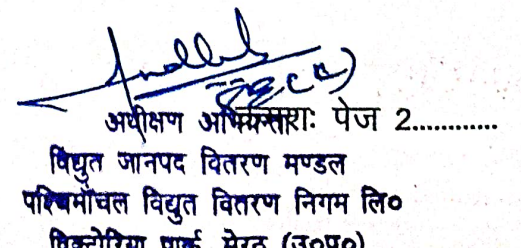 अधीक्षण अभियन्ता क्रमशः पेज 2............
विद्युत जानपद वितरण मण्डल
पश्चिमाँचल विद्युत वितरण निगम लि०
विक्टोरिया पार्क, मेरठ (उ०प्र०)